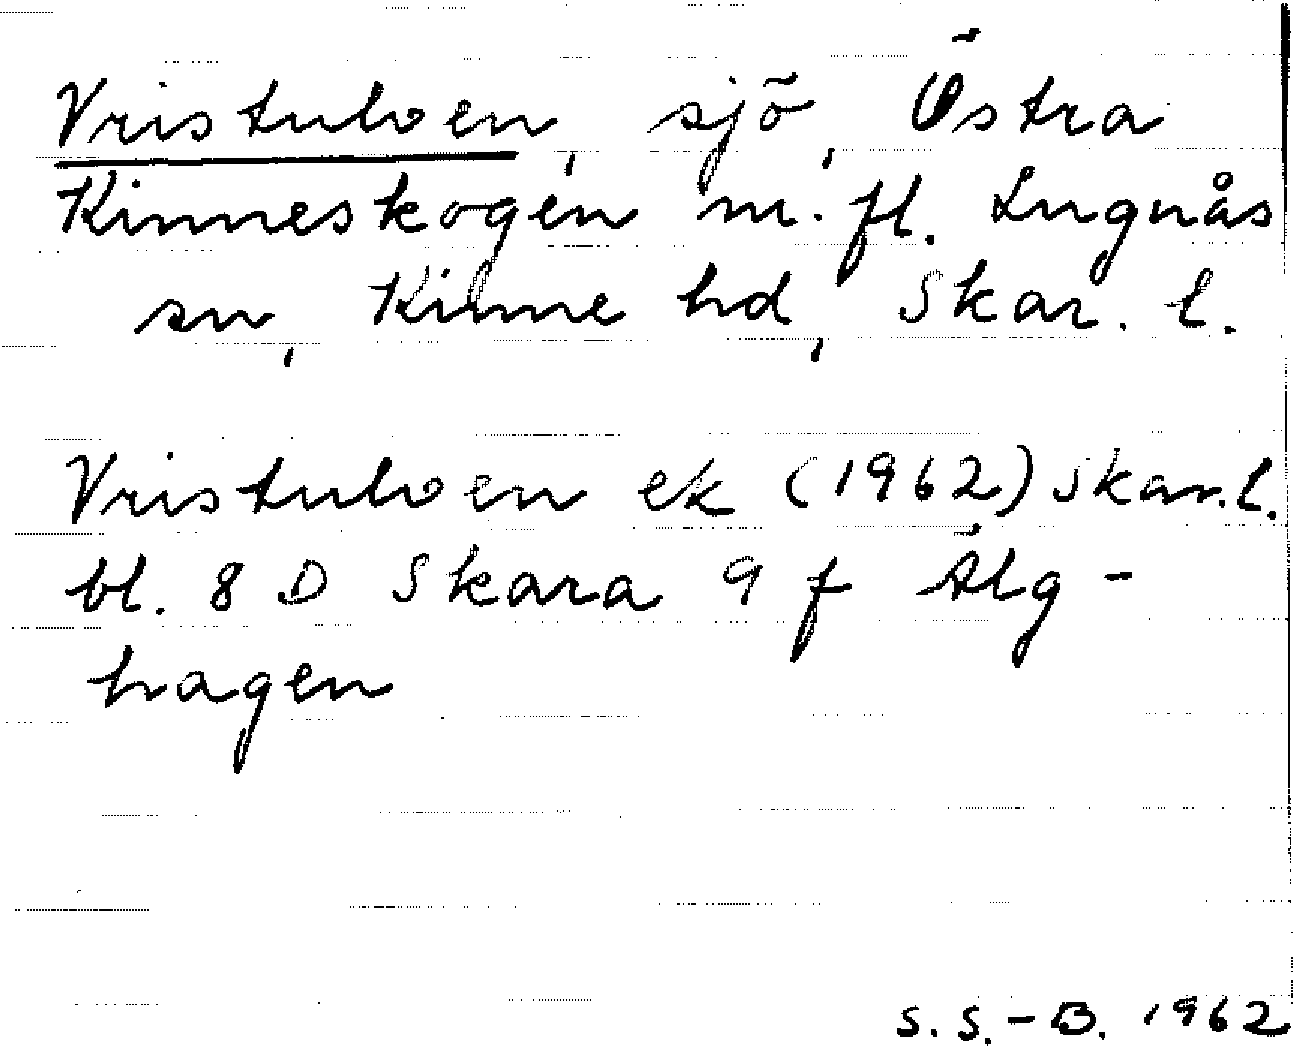 Vristulven, sjö, Östra
Kinneskogen m. fl. Lugnås
sn, Kinne hd, Skar. l.
Vristulven ek (1962) Skar. l.
bl. 8 D Skara 9 f Älg-
hagen
S. S.-B. 1962